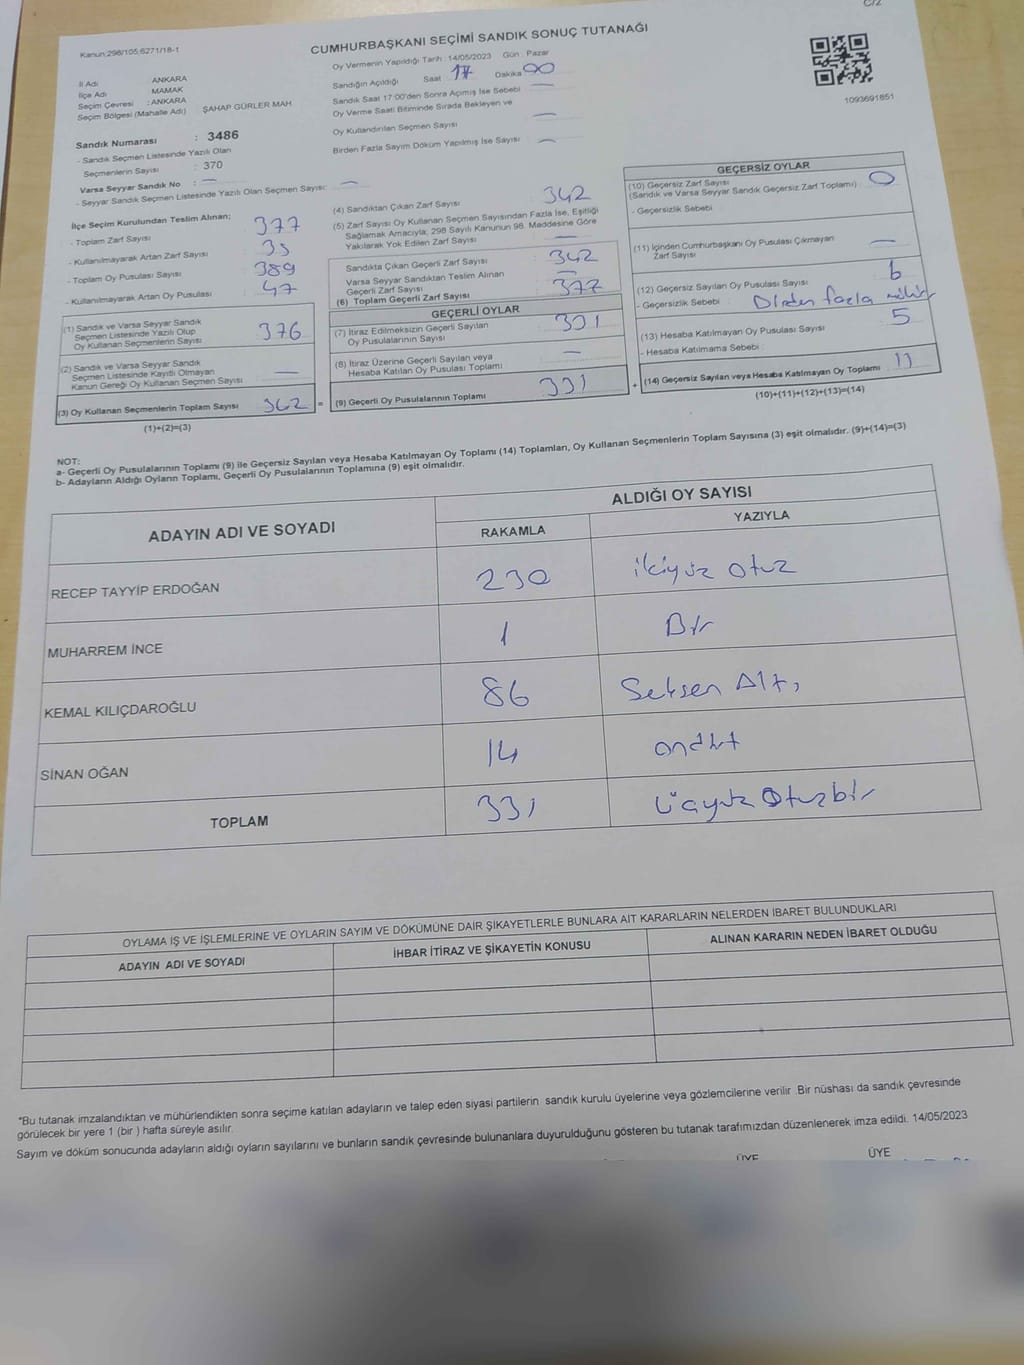 C/2
Kanun:298/105;6271/18-1
CUMHURBAŞKANI SEÇİMİ SANDIK SONUÇ TUTANAĞI
1093691851
İl Adı : ANKARA
İlçe Adı : MAMAK
Seçim Çevresi : ANKARA
Seçim Bölgesi (Mahalle Adı) ŞAHAP GÜRLER MAH.
Sandık Numarası : 3486
- Sandık Seçmen Listesinde Yazılı Olan
Seçmenlerin Sayısı : 370
Varsa Seyyar Sandık No : —
- Seyyar Sandık Seçmen Listesinde Yazılı Olan Seçmen Sayısı: —
Oy Vermenin Yapıldığı Tarih :14/05/2023 Gün : Pazar
Sandığın Açıldığı Saat 17 Dakika 00
Sandık Saat 17:00'den Sonra Açımış İse Sebebi —
Oy Verme Saati Bitiminde Sırada Bekleyen ve
Oy Kullandırılan Seçmen Sayısı —
Birden Fazla Sayım Döküm Yapılmış İse Sayısı : —
İlçe Seçim Kurulundan Teslim Alınan;
- Toplam Zarf Sayısı : 377
- Kullanılmayarak Artan Zarf Sayısı : 35
- Toplam Oy Pusulası Sayısı : 389
- Kullanılmayarak Artan Oy Pusulası : 47
(1) Sandık ve Varsa Seyyar Sandık
Seçmen Listesinde Yazılı Olup
Oy Kullanan Seçmenlerin Sayısı : 376
(2) Sandık ve Varsa Seyyar Sandık
Seçmen Listesinde Kayıtlı Olmayan
Kanun Gereği Oy Kullanan Seçmen Sayısı : —
(3) Oy Kullanan Seçmenlerin Toplam Sayısı 362 =
(1)+(2)=(3)
(4) Sandıktan Çıkan Zarf Sayısı : 342
(5) Zarf Sayısı Oy Kullanan Seçmen Sayısından Fazla İse, Eşitliği
Sağlamak Amacıyla; 298 Sayılı Kanunun 98. Maddesine Göre
Yakılarak Yok Edilen Zarf Sayısı : —
Sandıkta Çıkan Geçerli Zarf Sayısı : 342
Varsa Seyyar Sandıktan Teslim Alınan
Geçerli Zarf Sayısı : —
(6) Toplam Geçerli Zarf Sayısı : 377
GEÇERLİ OYLAR
(7) İtiraz Edilmeksizin Geçerli Sayılan
Oy Pusulalarının Sayısı : 331
(8) İtiraz Üzerine Geçerli Sayılan veya
Hesaba Katılan Oy Pusulası Toplamı : —
(9) Geçerli Oy Pusulalarının Toplamı : 331 +
GEÇERSİZ OYLAR
(10) Geçersiz Zarf Sayısı
(Sandık ve Varsa Seyyar Sandık Geçersiz Zarf Toplamı) : 0
- Geçersizlik Sebebi :
(11) İçinden Cumhurbaşkanı Oy Pusulası Çıkmayan
Zarf Sayısı : —
(12) Geçersiz Sayılan Oy Pusulası Sayısı : 6
- Geçersizlik Sebebi : fazla mühür
(13) Hesaba Katılmayan Oy Pusulası Sayısı : 5
- Hesaba Katılmama Sebebi :
(14) Geçersiz Sayılan veya Hesaba Katılmayan Oy Toplamı : 11
(10)+(11)+(12)+(13)=(14)
NOT:
a- Geçerli Oy Pusulalarının Toplamı (9) ile Geçersiz Sayılan veya Hesaba Katılmayan Oy Toplamı (14) Toplamları, Oy Kullanan Seçmenlerin Toplam Sayısına (3) eşit olmalıdır. (9)+(14)=(3)
b- Adayların Aldığı Oyların Toplamı, Geçerli Oy Pusulalarının Toplamına (9) eşit olmalıdır.
ADAYIN ADI VE SOYADI
ALDIĞI OY SAYISI
RAKAMLA YAZIYLA
RECEP TAYYİP ERDOĞAN 230 ikiyüz otuz
MUHARREM İNCE 1 Bir
KEMAL KILIÇDAROĞLU 86 Seksen Altı
SİNAN OĞAN 14 ondört
TOPLAM 331 üçyüz otuzbir
OYLAMA İŞ VE İŞLEMLERİNE VE OYLARIN SAYIM VE DÖKÜMÜNE DAİR ŞİKAYETLERLE BUNLARA AİT KARARLARIN NELERDEN İBARET BULUNDUKLARI
ADAYIN ADI VE SOYADI İHBAR İTİRAZ VE ŞİKAYETİN KONUSU ALINAN KARARIN NEDEN İBARET OLDUĞU
*Bu tutanak imzalandıktan ve mühürlendikten sonra seçime katılan adayların ve talep eden siyasi partilerin sandık kurulu üyelerine veya gözlemcilerine verilir .Bir nüshası da sandık çevresinde
görülecek bir yere 1 (bir ) hafta süreyle asılır.
Sayım ve döküm sonucunda adayların aldığı oyların sayılarını ve bunların sandık çevresinde bulunanlara duyurulduğunu gösteren bu tutanak tarafımızdan düzenlenerek imza edildi. 14/05/2023
ÜYE ÜYE